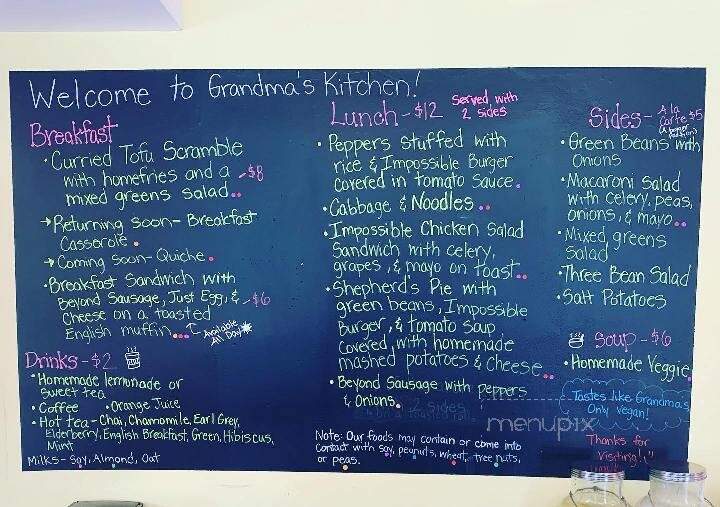 Welcome to Grandma's Kitchen!
Breakfast
• Curried Tofu Scramble
with homefries and a - $8
mixed greens salad
→ Returning soon - Breakfast
Casserole
→ Coming soon - Quiche
• Breakfast Sandwich with
Beyond Sausage, Just Egg, & - $6
Cheese on a toasted
English muffin
Available
All Day
Drinks - $2
• Homemade lemonade or
sweet tea
• Coffee • Orange Juice
• Hot tea - Chai, Chamomile, Earl Grey,
Elderberry, English Breakfast, Green, Hibiscus,
Mint
Milks - Soy, Almond, Oat
Lunch - $12 Served with
2 sides
• Peppers stuffed with
rice & Impossible Burger
covered in tomato sauce
• Cabbage & Noodles
• Impossible Chicken Salad
Sandwich with celery,
grapes, & mayo on toast
• Shepherd's Pie with
green beans, Impossible
Burger, & tomato soup,
covered with homemade
mashed potatoes & cheese
• Beyond Sausage with peppers
& onions
2 sides
Note: Our foods may contain or come into
contact with soy, peanuts, wheat, tree nuts,
or peas.
Sides - A la
Carte $5
• Green Beans with
Onions
• Macaroni Salad
with celery, peas,
onions, & mayo
• Mixed greens
Salad
• Three Bean Salad
• Salt Potatoes
Soup - $6
• Homemade Veggie
Tastes like Grandma's
Only Vegan!
Thanks for
visiting!
menupix